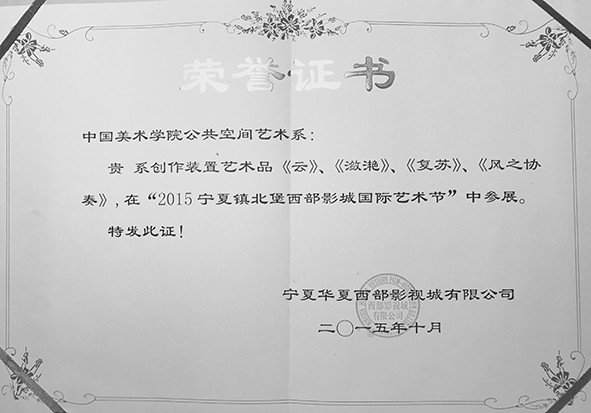 荣誉证书
中国美术学院公共空间艺术系：
贵 系创作装置艺术品《云》、《潋滟》、《复苏》、《风之协
奏》，在“2015宁夏镇北堡西部影城国际艺术节”中参展。
特发此证！
宁夏华夏西部影视城有限公司
西部影视城
有限公司
二〇一五年十月